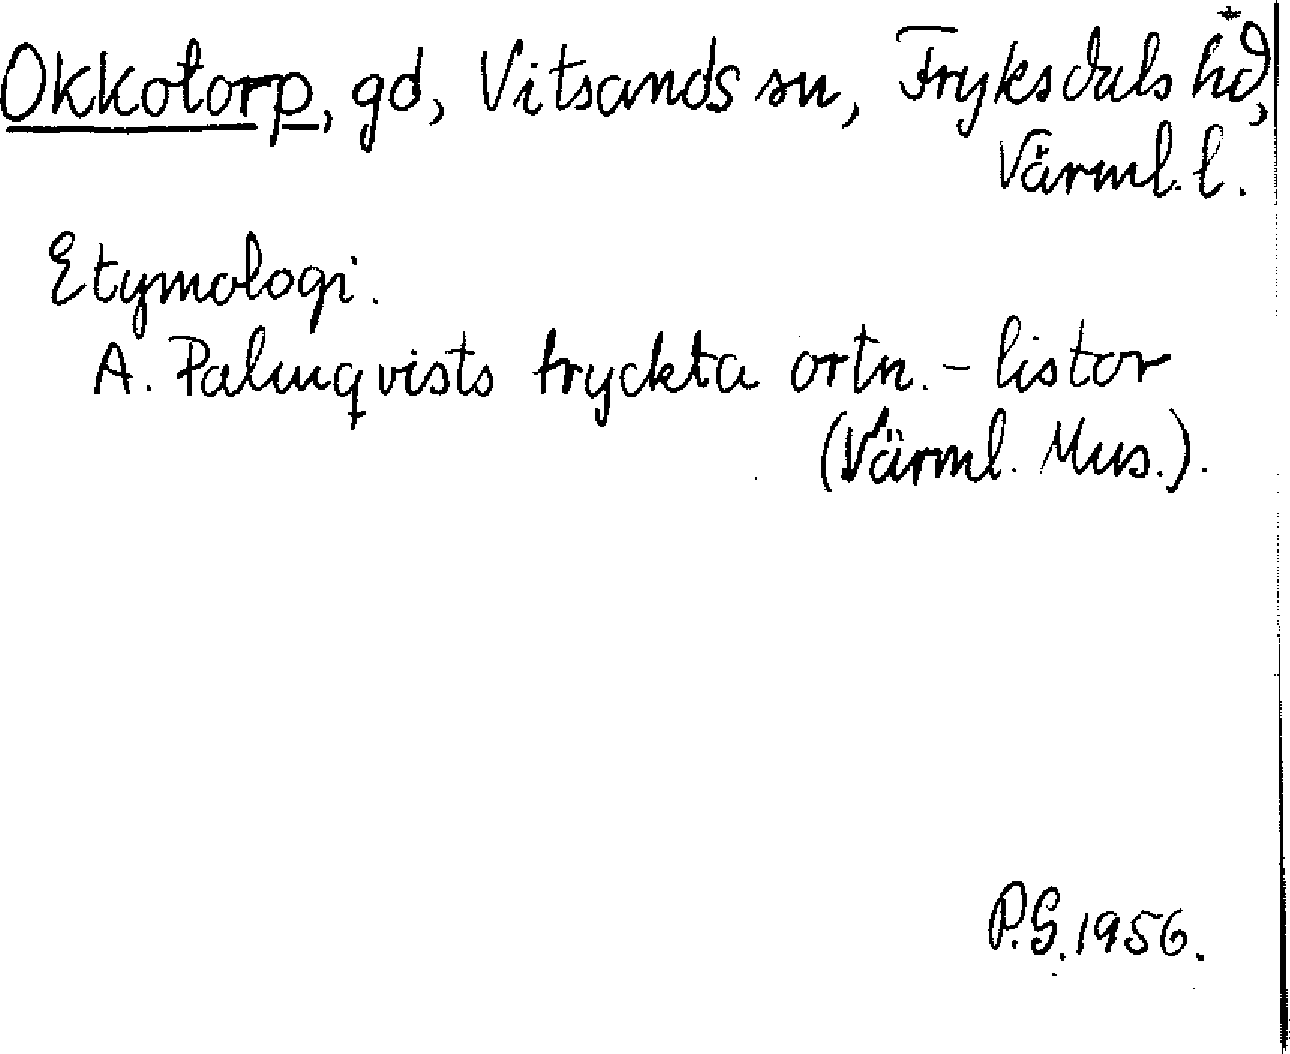 Okkotorp, gd, Vitsands sn, Fryksdals hd,
Värml. l.
Etymologi.
A. Palmqvists tryckta ortn.-listor
(Värml. Mus.).
P.G. 1956.